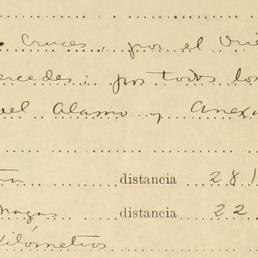 Cruces, por el Orie
ercedes; por todos los
del Alamo y Anex
distancia 281
distancia 22
Kilómetros